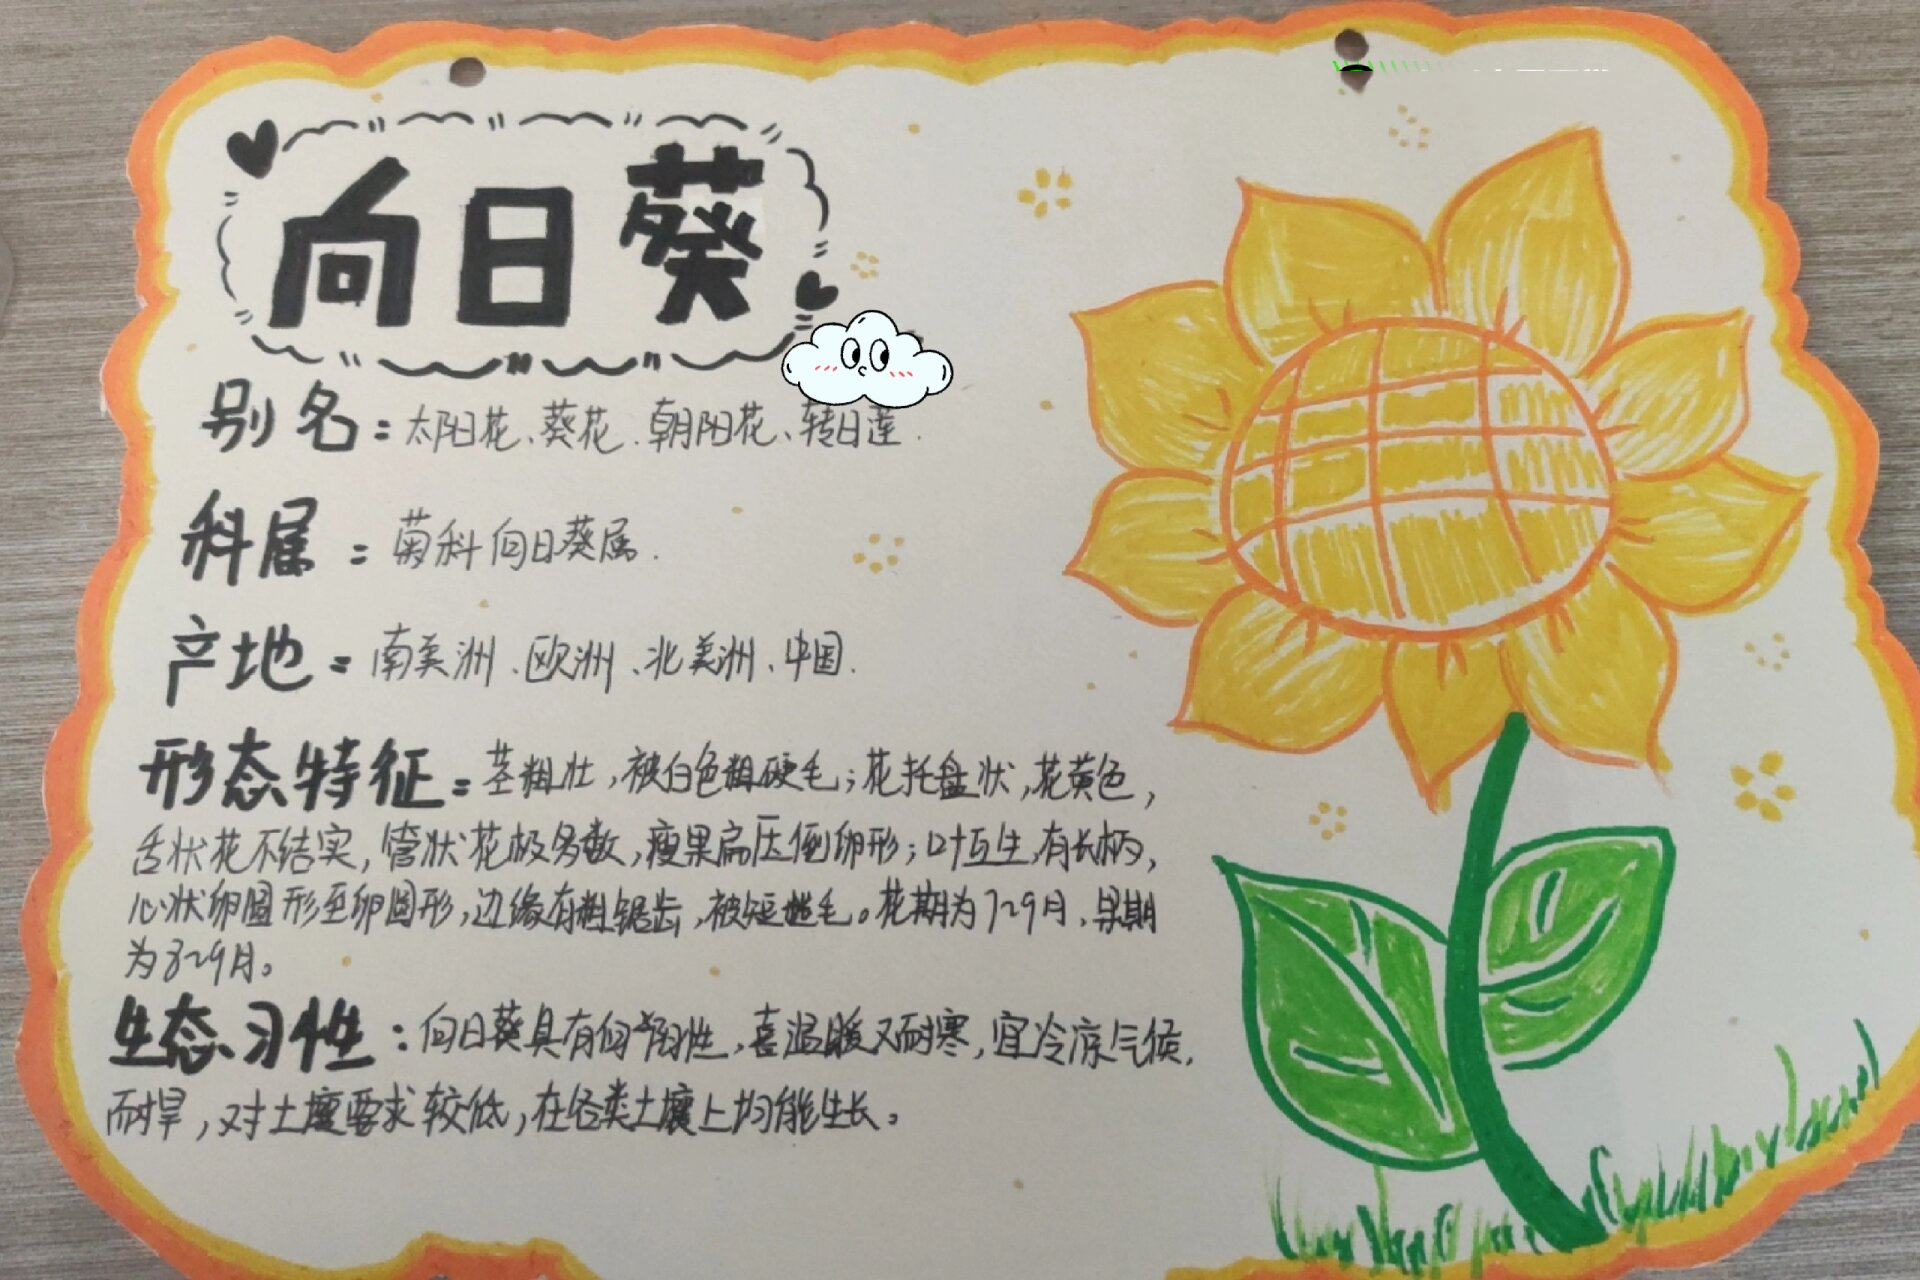 向日葵
别名：太阳花、葵花、朝阳花、转日莲.
科属：菊科向日葵属.
产地：南美洲、欧洲、北美洲、中国.
形态特征：茎粗壮，被白色粗硬毛；花托盘状，花黄色，
舌状花不结实，管状花极多数，瘦果扁压倒卵形；叶互生，有长柄，
心状卵圆形至卵圆形，边缘有粗锯齿，被短糙毛。花期为7~9月，果期
为8~9月。
生态习性：向日葵具有向阳性，喜温暖又耐寒，宜冷凉气候，
耐旱，对土壤要求较低，在各类土壤上均能生长。